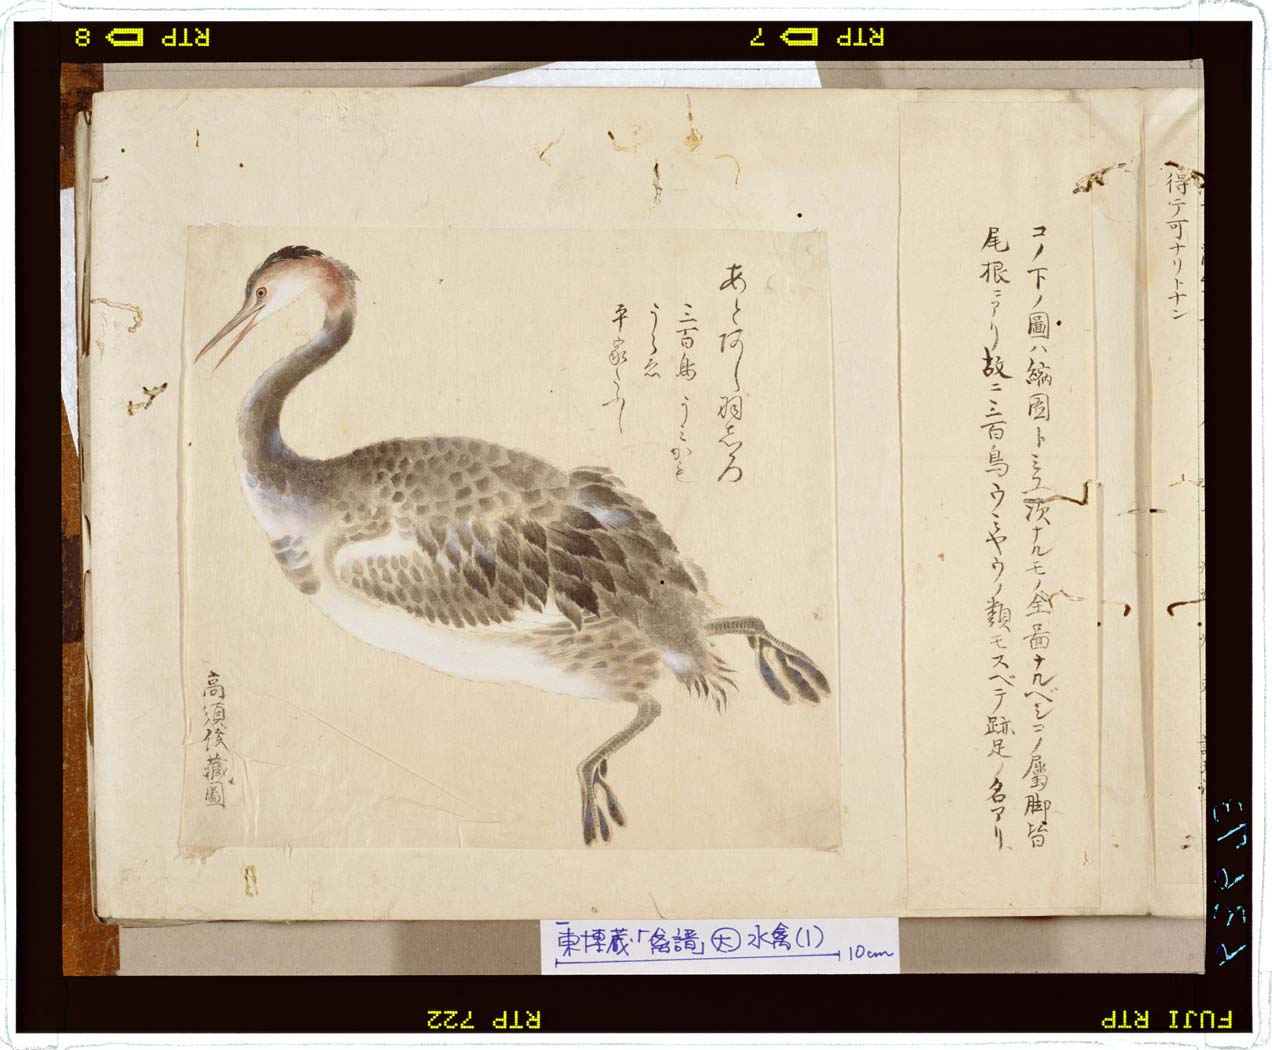 8 RTP
7 RTP
得テ可ナリトナン
コノ下ノ圖ハ縮圖トミヱ次ナルモノ全圖ナルベシコノ屬脚皆
尾根ニアリ故ニ三百鳥ウミヤウノ類モスベテ跡足ノ名アリ
あとあし 羽しろ
三百鳥 うみかも
平家
高須侯藏圖
東博蔵「禽譜」大 水禽(1)
10cm
RTP 722
FUJI RTP